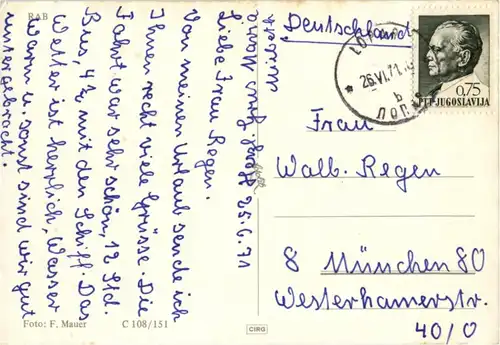 RAB
25.6.71
Liebe Frau Regen.
Von meinen Urlaub sende ich
Ihnen recht viele Grüsse. Die
Fahrt war sehr schön, 12 Std.
Bus, 4½ mit den Schiff. Das
Wetter ist herrlich, Wasser
warm u. sonst sind wir gut
untergebracht.
Foto: F. Mauer C 108/151
CIRG
Deutschland
26.VI.71
b
0,75
PTT-JUGOSLAVIJA
Frau
Walb. Regen
8 München 80
Westerhamerstr.
40/0